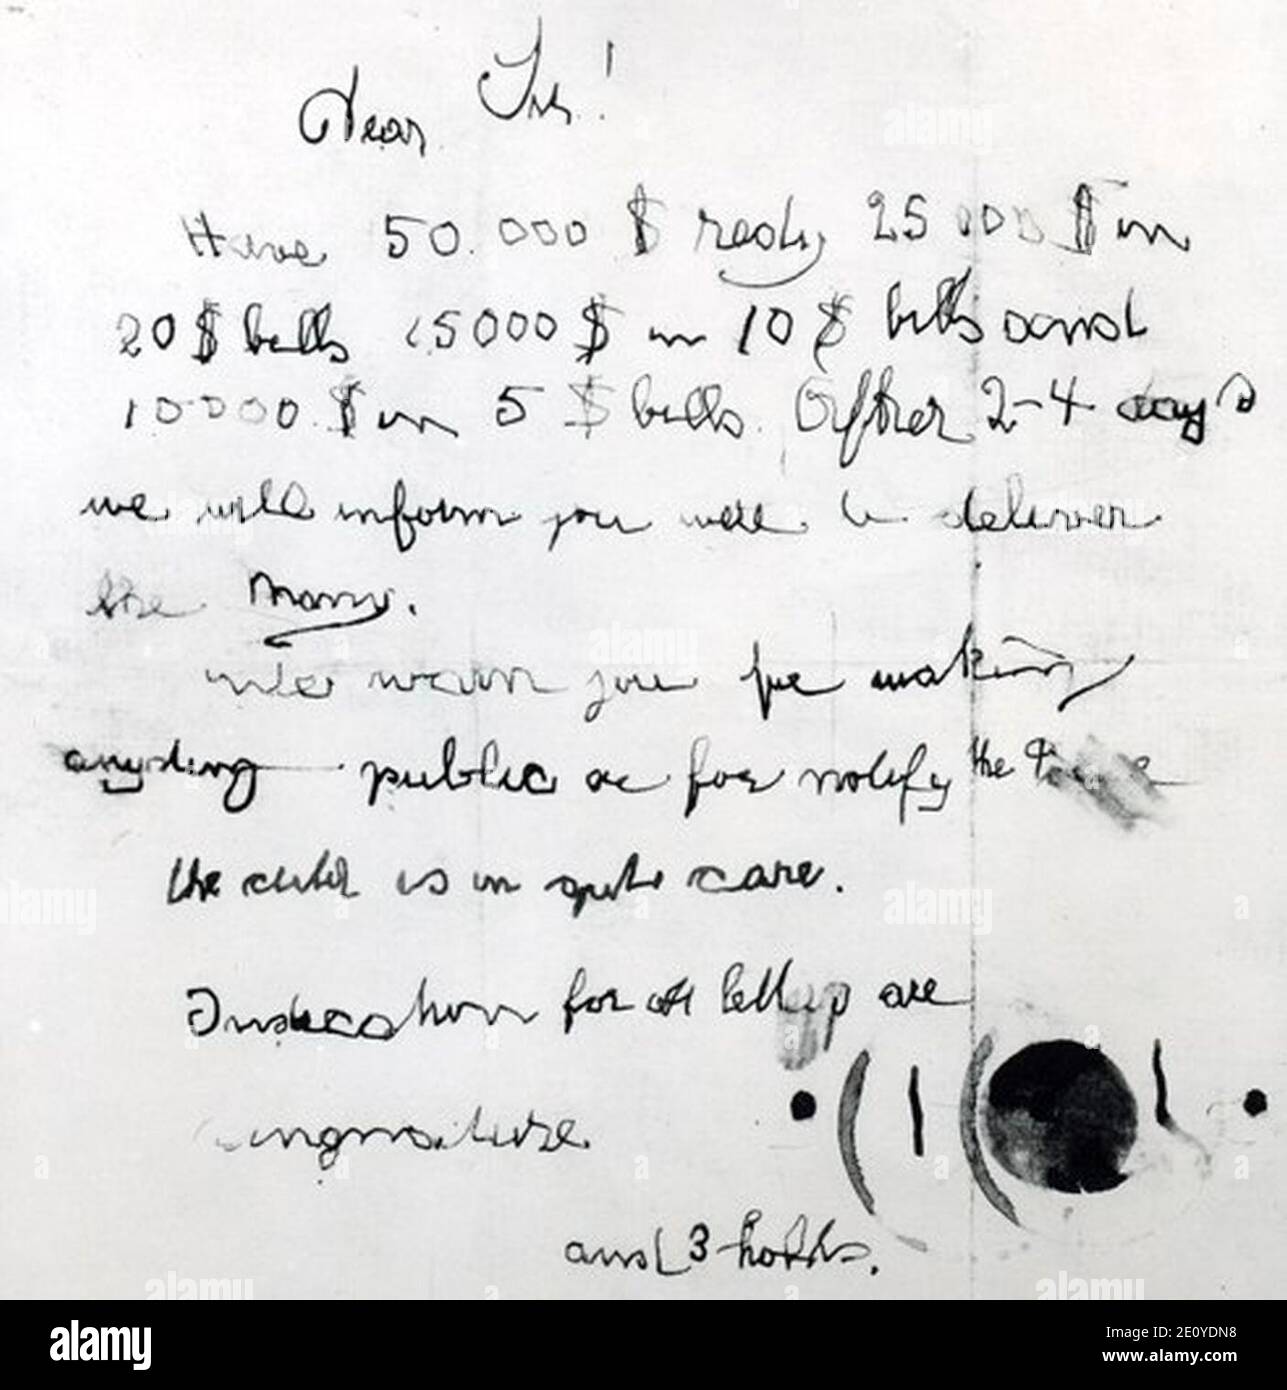 Dear Sir!
Have 50.000 $ redy 25 000 $ in
20 $ bills 15000 $ in 10 $ bills and
10000 $ in 5 $ bills. After 2-4 days
we will inform you were to deliver
the Mony.
We warn you for making
anyding public or for notify the
the child is in gute care.
Indication for all letters are
singnature
and 3 holds.
alamy
Image ID: 2E0YDN8
www.alamy.com